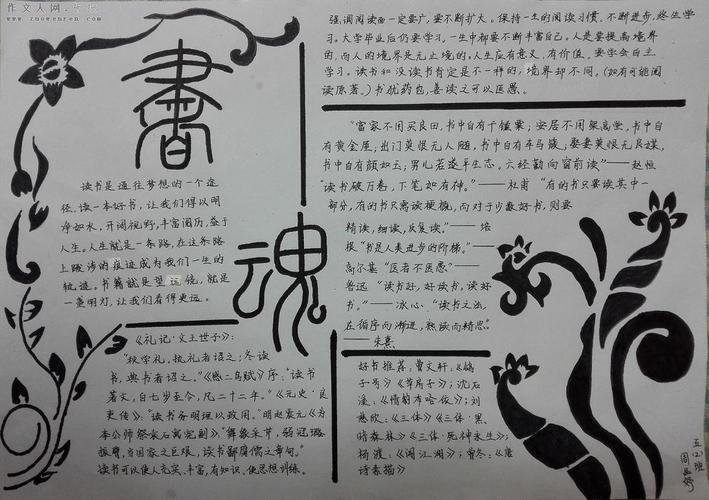 作文人网
www.zuowenren.com
書
魂
读书是通往梦想的一个途
径，读一本好书，让我们得以明
净如水，开阔视野，丰富阅历，益于
人生。人生就是一条路，在这条路
上跋涉的痕迹成为我们一生的
轨迹。书籍就是望远镜，就是
一盏明灯，让我们看得更远。
《礼记·文王世子》：
"秋学礼，执礼者诏之；冬读
书，典书者诏之。"《感二鸟赋》序："读书
著文，自七岁至今，凡二十二年。"《元史·良
吏传》："读书务明理以致用。"明赵震元《为
本公师祭袁石寓宪副》："舞象采芹，弱冠璐
振膺，当国家之巨艰，读书鄙腐儒之章句。"
读书可以使人充实、丰富，有知识，使思想训练。
强调阅读面一定要广，要不断扩大。保持一生的阅读习惯，不断进步，终生学
习。大学毕业后仍要学习。一生中都要不断丰富自己。人是要提高境界
的，而人的境界是无止境的，人生应有意义，有价值。要学会自主
学习。读书和没读书肯定是不一样的，境界却不同。（如有可能阅
读原著。）书犹药也，善读之可以医愚。
"富家不用买良田，书中自有千锺粟；安居不用架高堂，书中自
有黄金屋；出门莫恨无人随，书中自有车马簇；娶妻莫恨无良媒，
书中自有颜如玉；男儿若遂平生志，六经勤向窗前读"——赵恒
"读书破万卷，下笔如有神。"——杜甫 "有的书只要读其中一
部分，有的书只需读梗概，而对于少数好书，则要
精读，细读，反复读。"——培
根 "书是人类进步的阶梯。"——
高尔基 "医者不医愚"——
鲁迅 "读书好，好读书，读好
书。"——冰心 "读书之法，
在循序而渐进，熟读而精思"
——朱熹
好书推荐：曹文轩：《鸽
子号》《草房子》；沈石
溪：《情豹布哈依》；刘
慈欣：《三体》《三体·黑
暗森林》《三体·死神永生》；
杨渡：《闯江湖》；曾冬：《唐
诗素描》
五（2）班
周